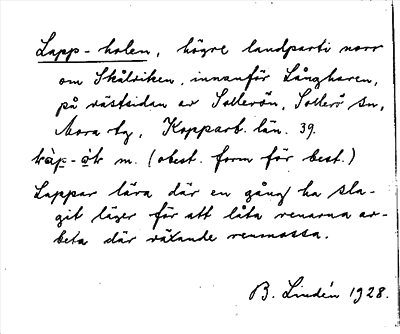 Lapp-holen, högre landparti norr
om Skålviken, innanför Långharen,
på västsidan av Sollerön, Sollerö sn,
Mora tg, Kopparb. län. 39.
m. (obest. form för best.)
Lappar lära där en gång ha sla-
git läger för att låta renarna ar-
beta där växande renmossa.
B. Lindén 1928.